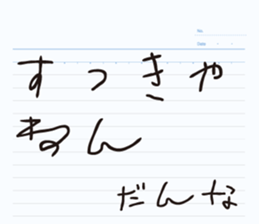 No.
Date
すつきや
ねん
だんな